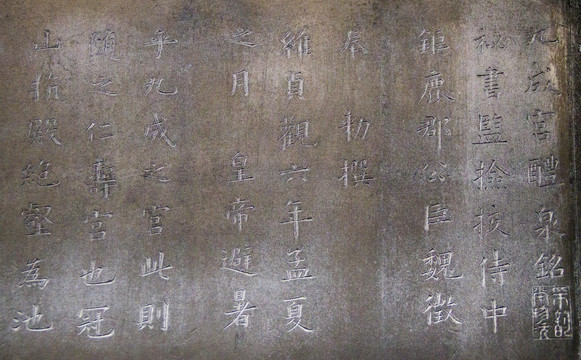 九成宮醴泉銘
秘書監撿挍侍中
鉅鹿郡公臣魏徵
奉 勑撰
維貞觀六年孟夏
之月 皇帝避暑
乎九成之宮此則
隨之仁壽宮也冠
山抗殿絕壑為池